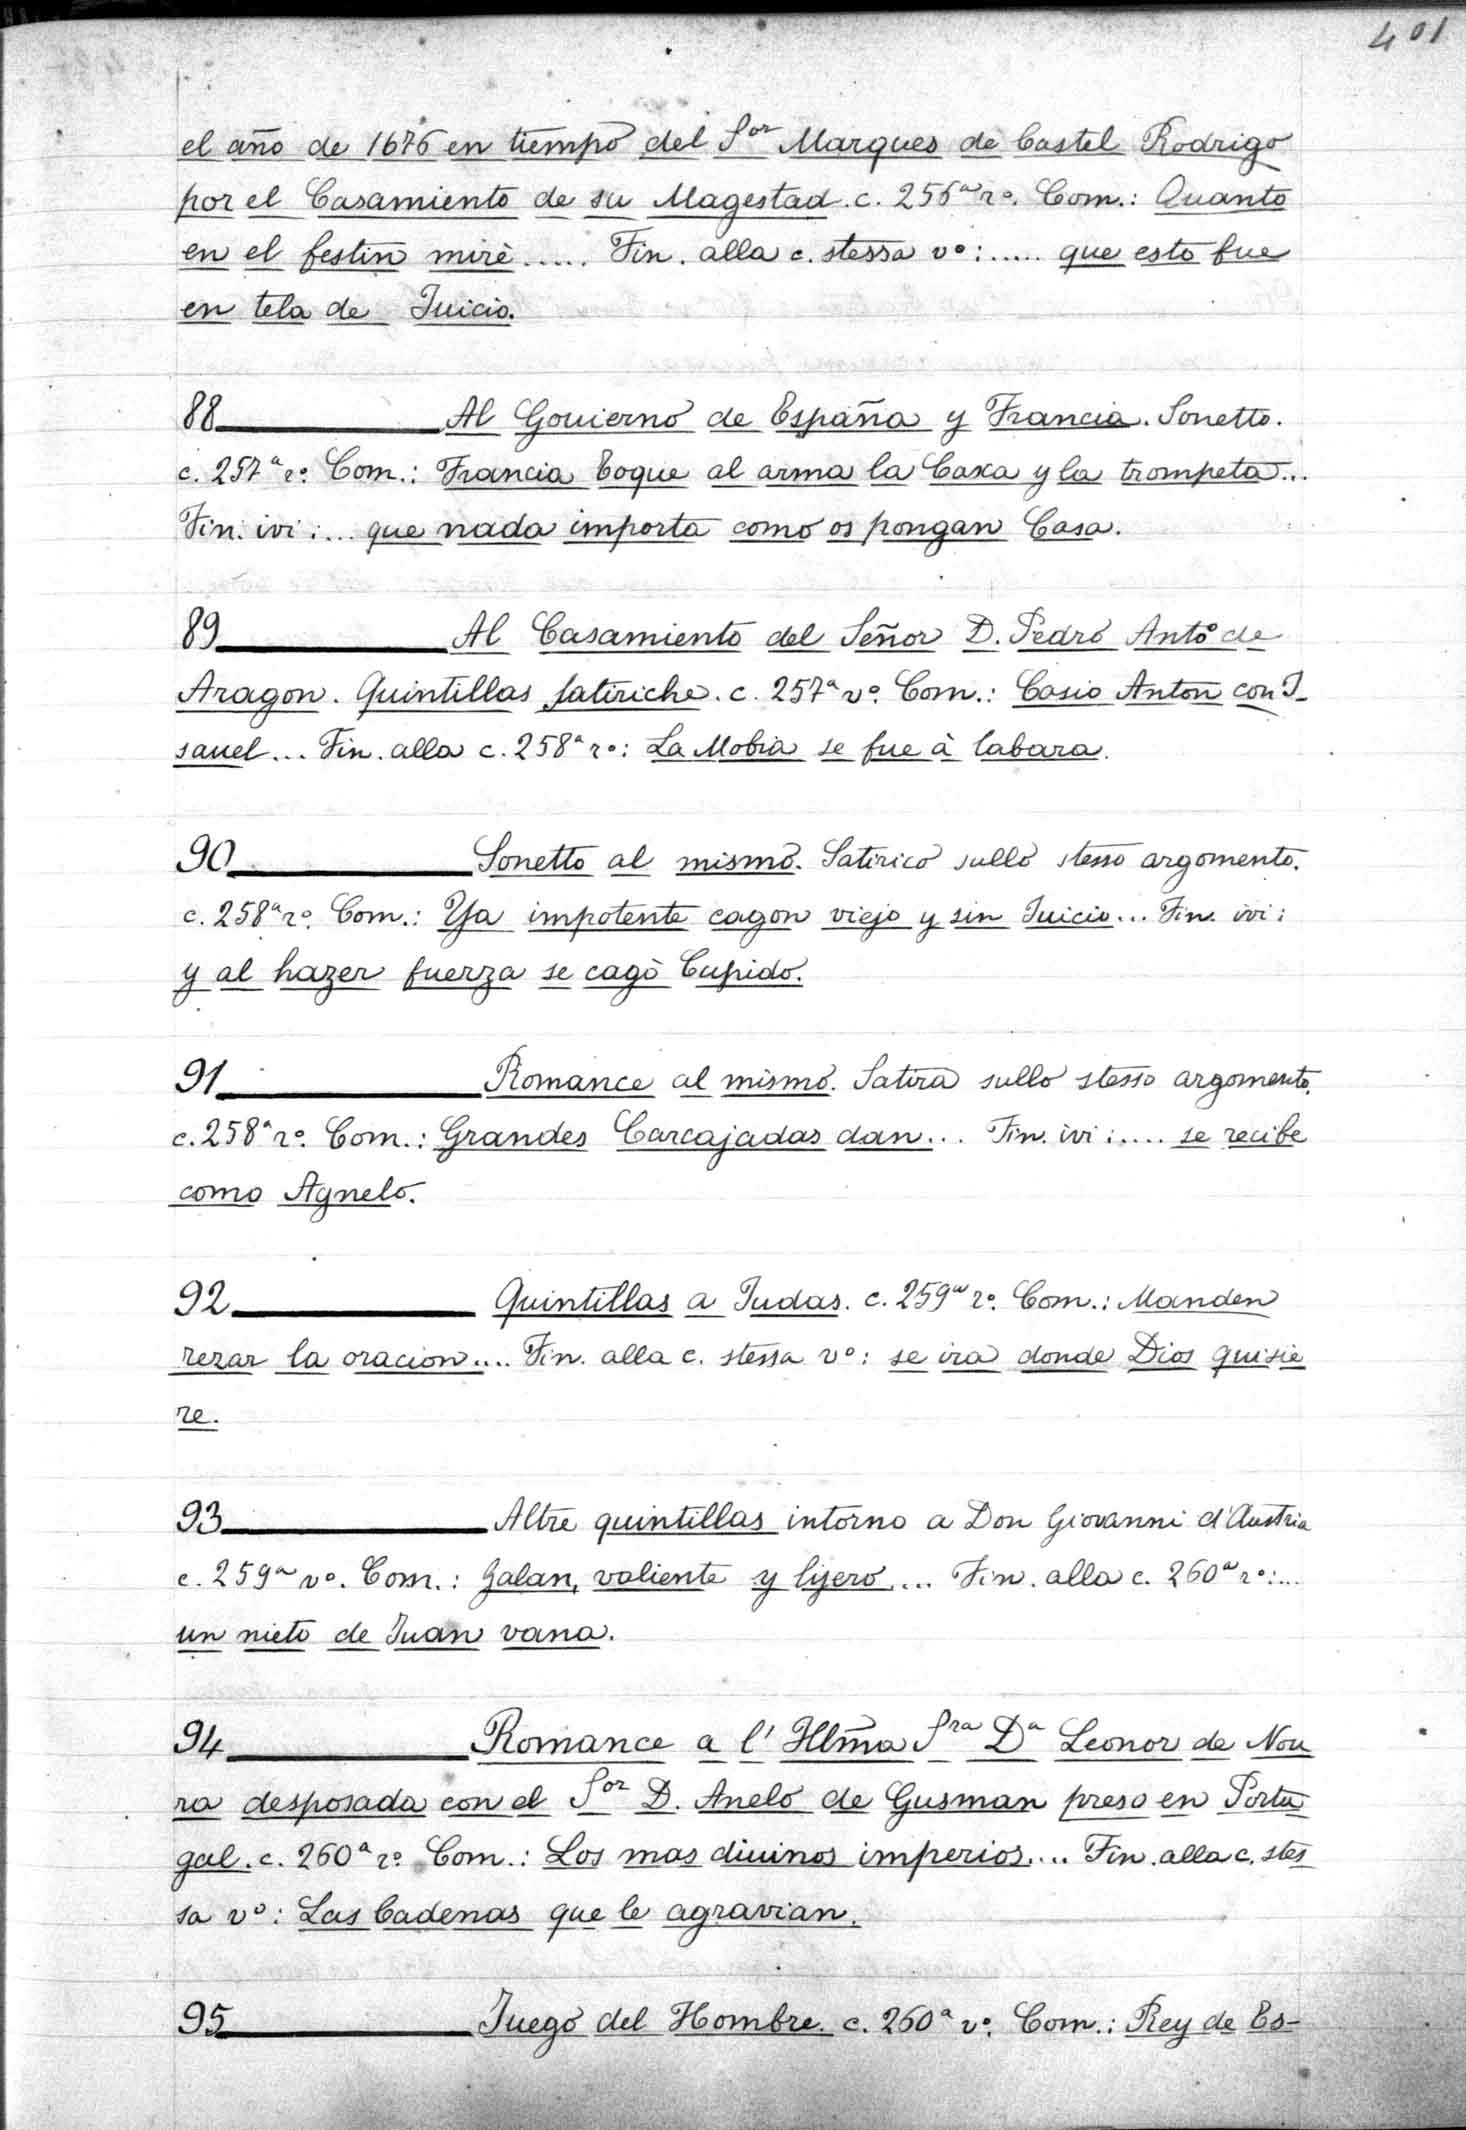 401
el año de 1676 en tiempo del Sor Marques de Castel Rodrigo
por el Casamiento de su Magestad. c. 256a ro. Com.: Quanto
en el festin mirè..... Fin. alla c. stessa vo:..... que esto fue
en tela de Juicio.
88 Al Gouierno de España y Francia. Sonetto.
c. 257a ro. Com.: Francia toque al arma la Caxa y la trompeta...
Fin. ivi:... que nada importa como os pongan Casa.
89 Al Casamiento del Señor D. Pedro Anto de
Aragon. Quintillas satiriche. c. 257a vo. Com.: Casio Anton con I-
sauel... Fin. alla c. 258a ro: La Mobia se fue à labara.
90 Sonetto al mismo. Satirico sullo stesso argomento.
c. 258a ro. Com.: Ya impotente cagon viejo y sin Juicio... Fin. ivi:
y al hazer fuerza se cagò Cupido.
91 Romance al mismo. Satira sullo stesso argomento.
c. 258a ro. Com.: Grandes Carcajadas dan... Fin. ivi:.... se recibe
como Agnelo.
92 Quintillas a Judas. c. 259a ro. Com.: Manden
rezar la oracion.... Fin. alla c. stessa vo: se ira donde Dios quisie
re.
93 Altre quintillas intorno a Don Giovanni d'Austria
c. 259a vo. Com.: Galan, valiente y lijero.... Fin. alla c. 260a ro:...
un nieto de Juan vana.
94 Romance a l' Illma Sra Da Leonor de Mou
ra desposada con el Sor D. Anelo de Gusman preso en Portu
gal. c. 260a ro. Com.: Los mas diuinos imperios.... Fin. alla c. stes
sa vo: Las Cadenas que le agravian.
95 Juego del Hombre. c. 260a vo. Com.: Rey de Es-